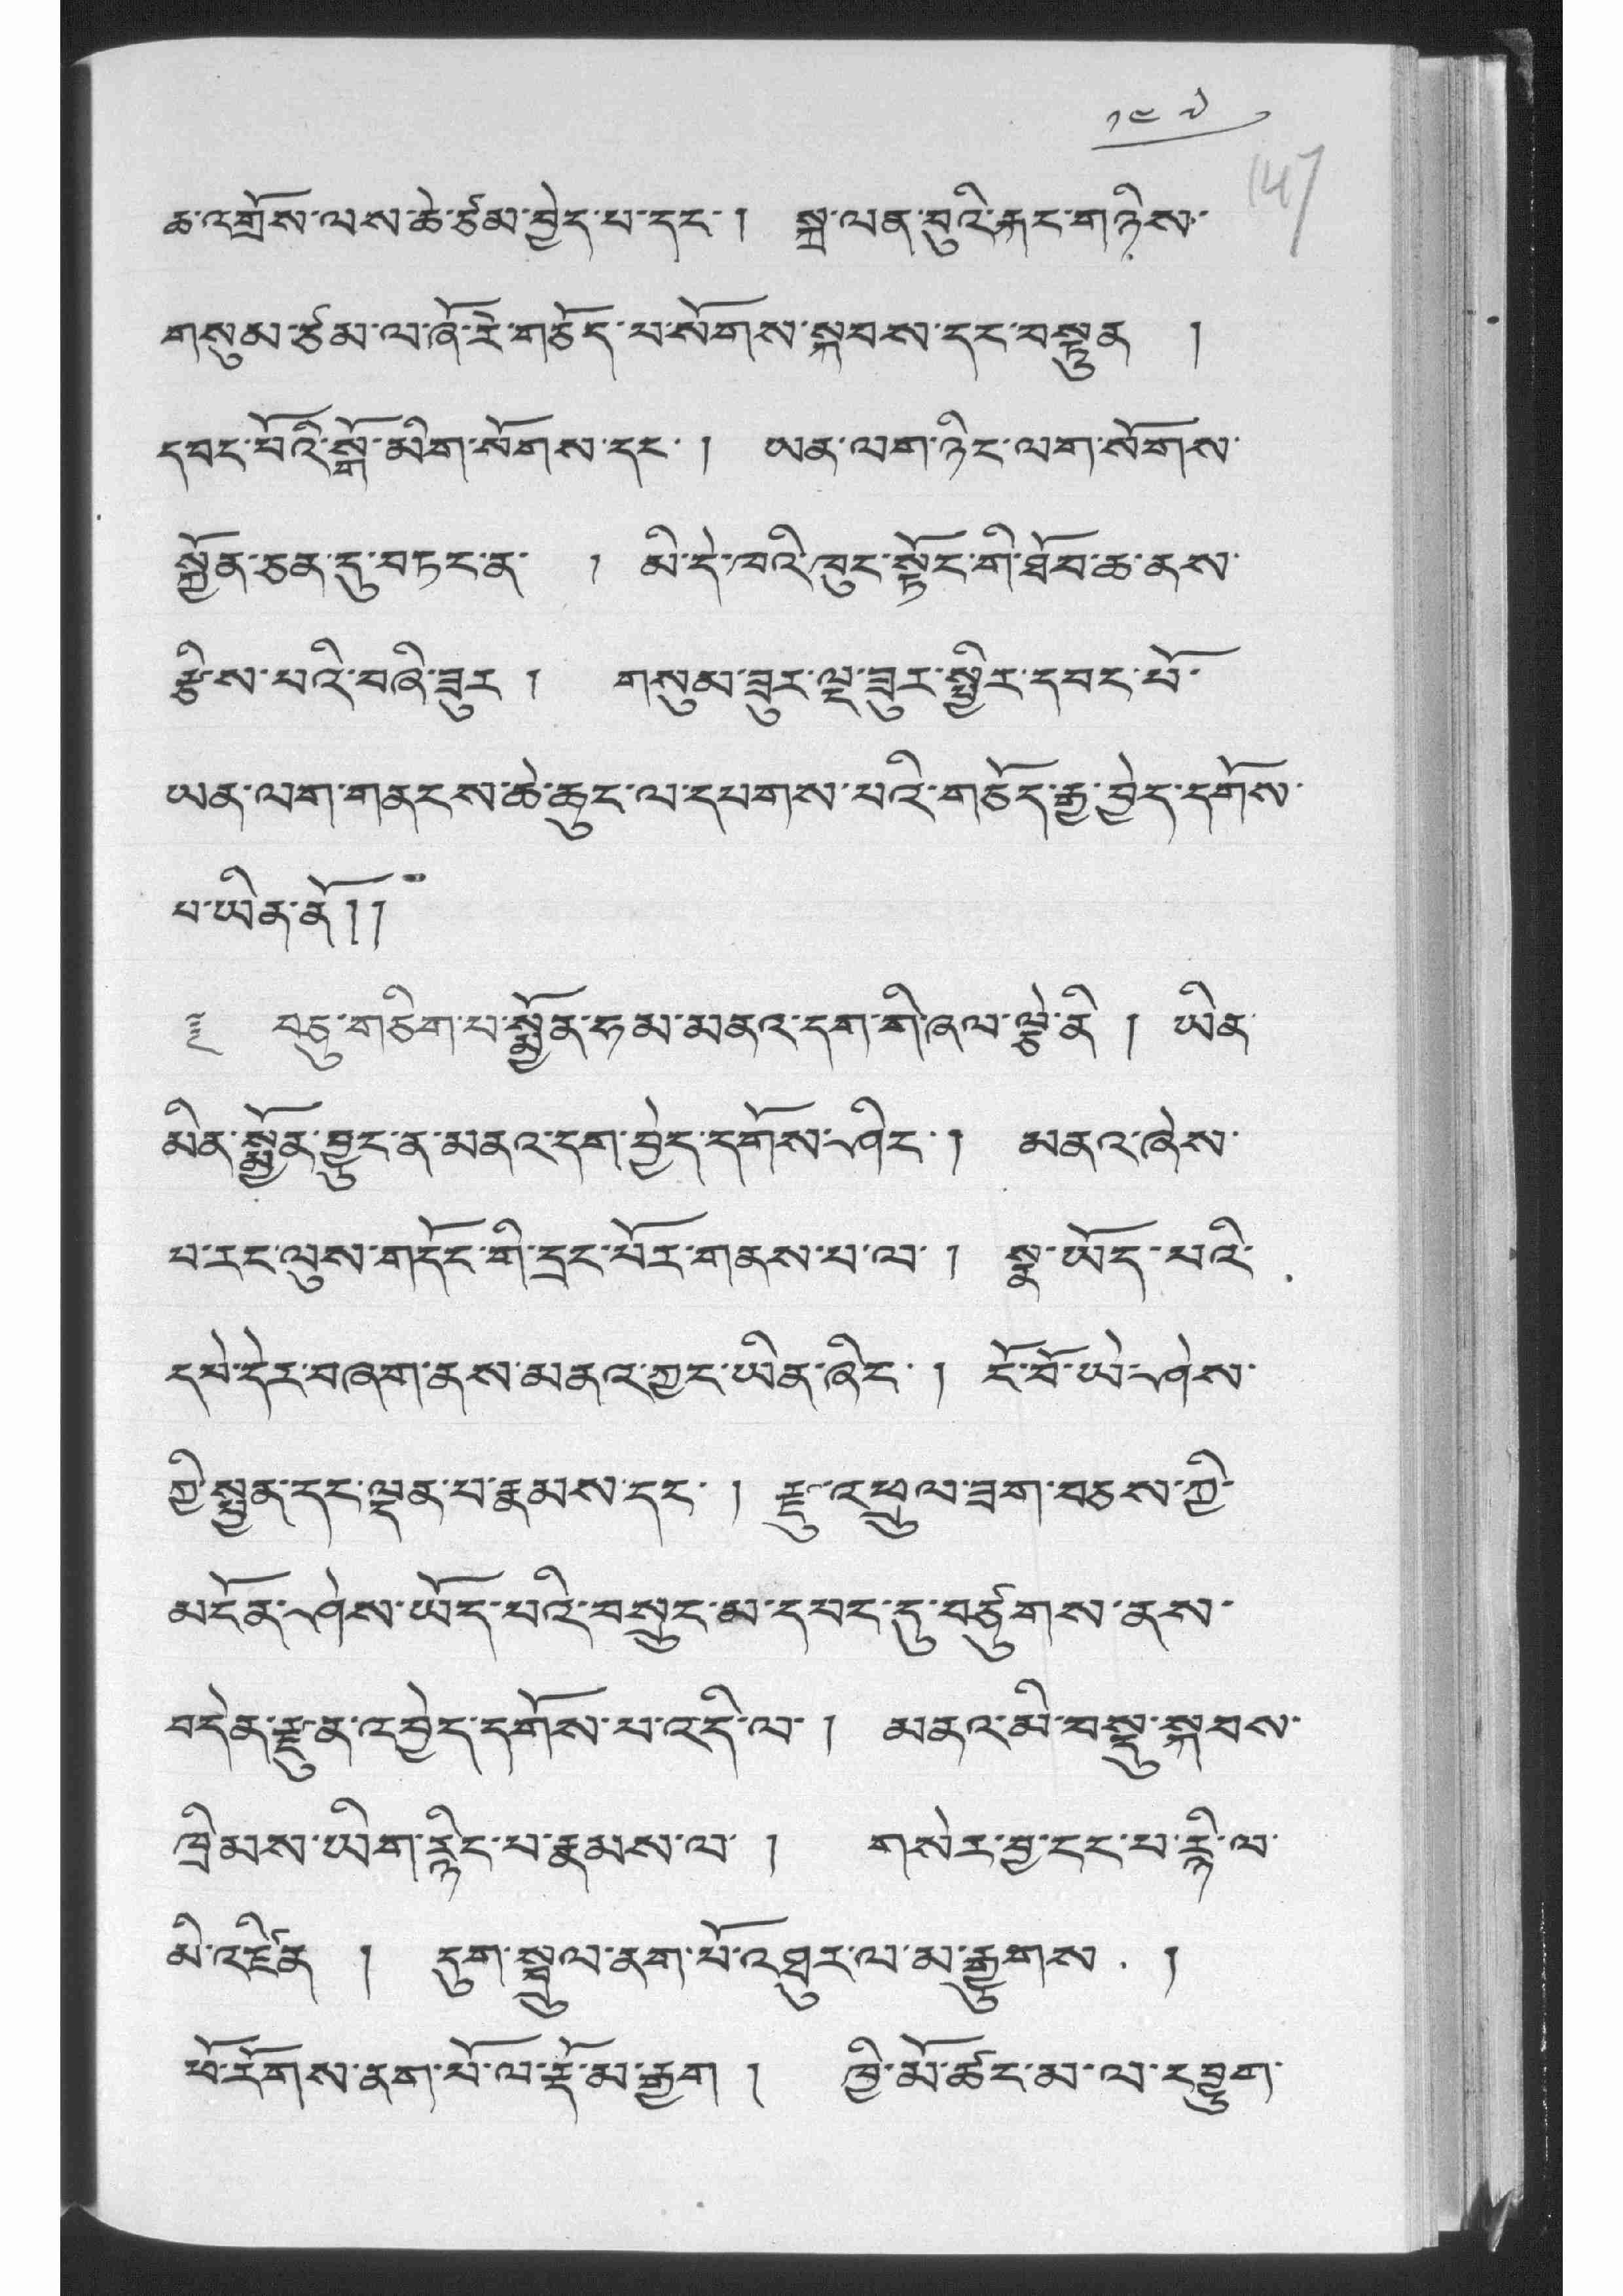 ༡༤༧
147
ཆ་འགྲོས་ལས་ཆེ་ཙམ་བྱེད་པ་དང་། སྐྲ་ལན་བུའི་རྐང་གཉིས་
གསུམ་ཙམ་ལ་ཞོ་རེ་གཅོད་པ་སོགས་སྐབས་དང་བསྟུན །
དབང་པོའི་སྒོ་མིག་སོགས་དང་། ཡན་ལག་ཉིང་ལག་སོགས་
སྐྱོན་ཅན་དུ་བཏང་ན་ ། མི་དེ་བའི་ཁུང་སྟོང་གི་ཐོབ་ཆ་ནས་
རྩིས་པའི་བཞི་ཟུར ། གསུམ་ཟུར་ལྔ་ཟུར་སྤྱིར་དབང་པོ་
ཡན་ལག་གནངས་ཆེ་ཆུང་ལ་དཔགས་པའི་གཅོད་རྒྱ་བྱེད་དགོས་
པ་ཡིན་ནོ།།
༈ བཅུ་གཅིག་པ་སྨྱོན་ཧམ་མནའ་དག་གི་ཞལ་ལྕེ་ནི། ཡིན་
མིན་སྨྱོན་བྱུང་ན་མནའ་དག་བྱེད་དགོས་ཤིང་། མནའ་ཞེས་
པ་རང་ལུས་གདོང་གི་དྲང་པོར་གནས་པ་ལ་ ། སྣ་ཡོད་པའི་
དཔེ་དེར་བཞག་ནས་མནའ་ཀྱང་ཡིན་ཞིང་། ངོ་བོ་ཡེ་ཤེས་
ཀྱི་སྤྱན་དང་ལྡན་པ་རྣམས་དང་། རྫུ་འཕྲུལ་ཟག་བཅས་ཀྱི་
མངོན་ཤེས་ཡོད་པའི་བསྲུང་མ་དབང་དུ་བཙུགས་ནས་
བདེན་རྫུན་འབྱེད་དགོས་པ་འདི་ལ་ ། མནའ་མི་བསྡུ་སྐབས་
ཁྲིམས་ཡིག་རྙིང་པ་རྣམས་ལ་ ། གསེར་བྱ་ངང་པ་རྙི་ལ་
མི་འཛིན ། དུག་སྦྲུལ་ནག་པོ་འཐུར་ལ་མ་རྒྱུགས །
ཕོ་རོགས་ནག་པོ་ལ་རྡོ་མ་རྒྱག ། ཁྱི་མོ་ཚོད་མ་ལ་དབྱུག་